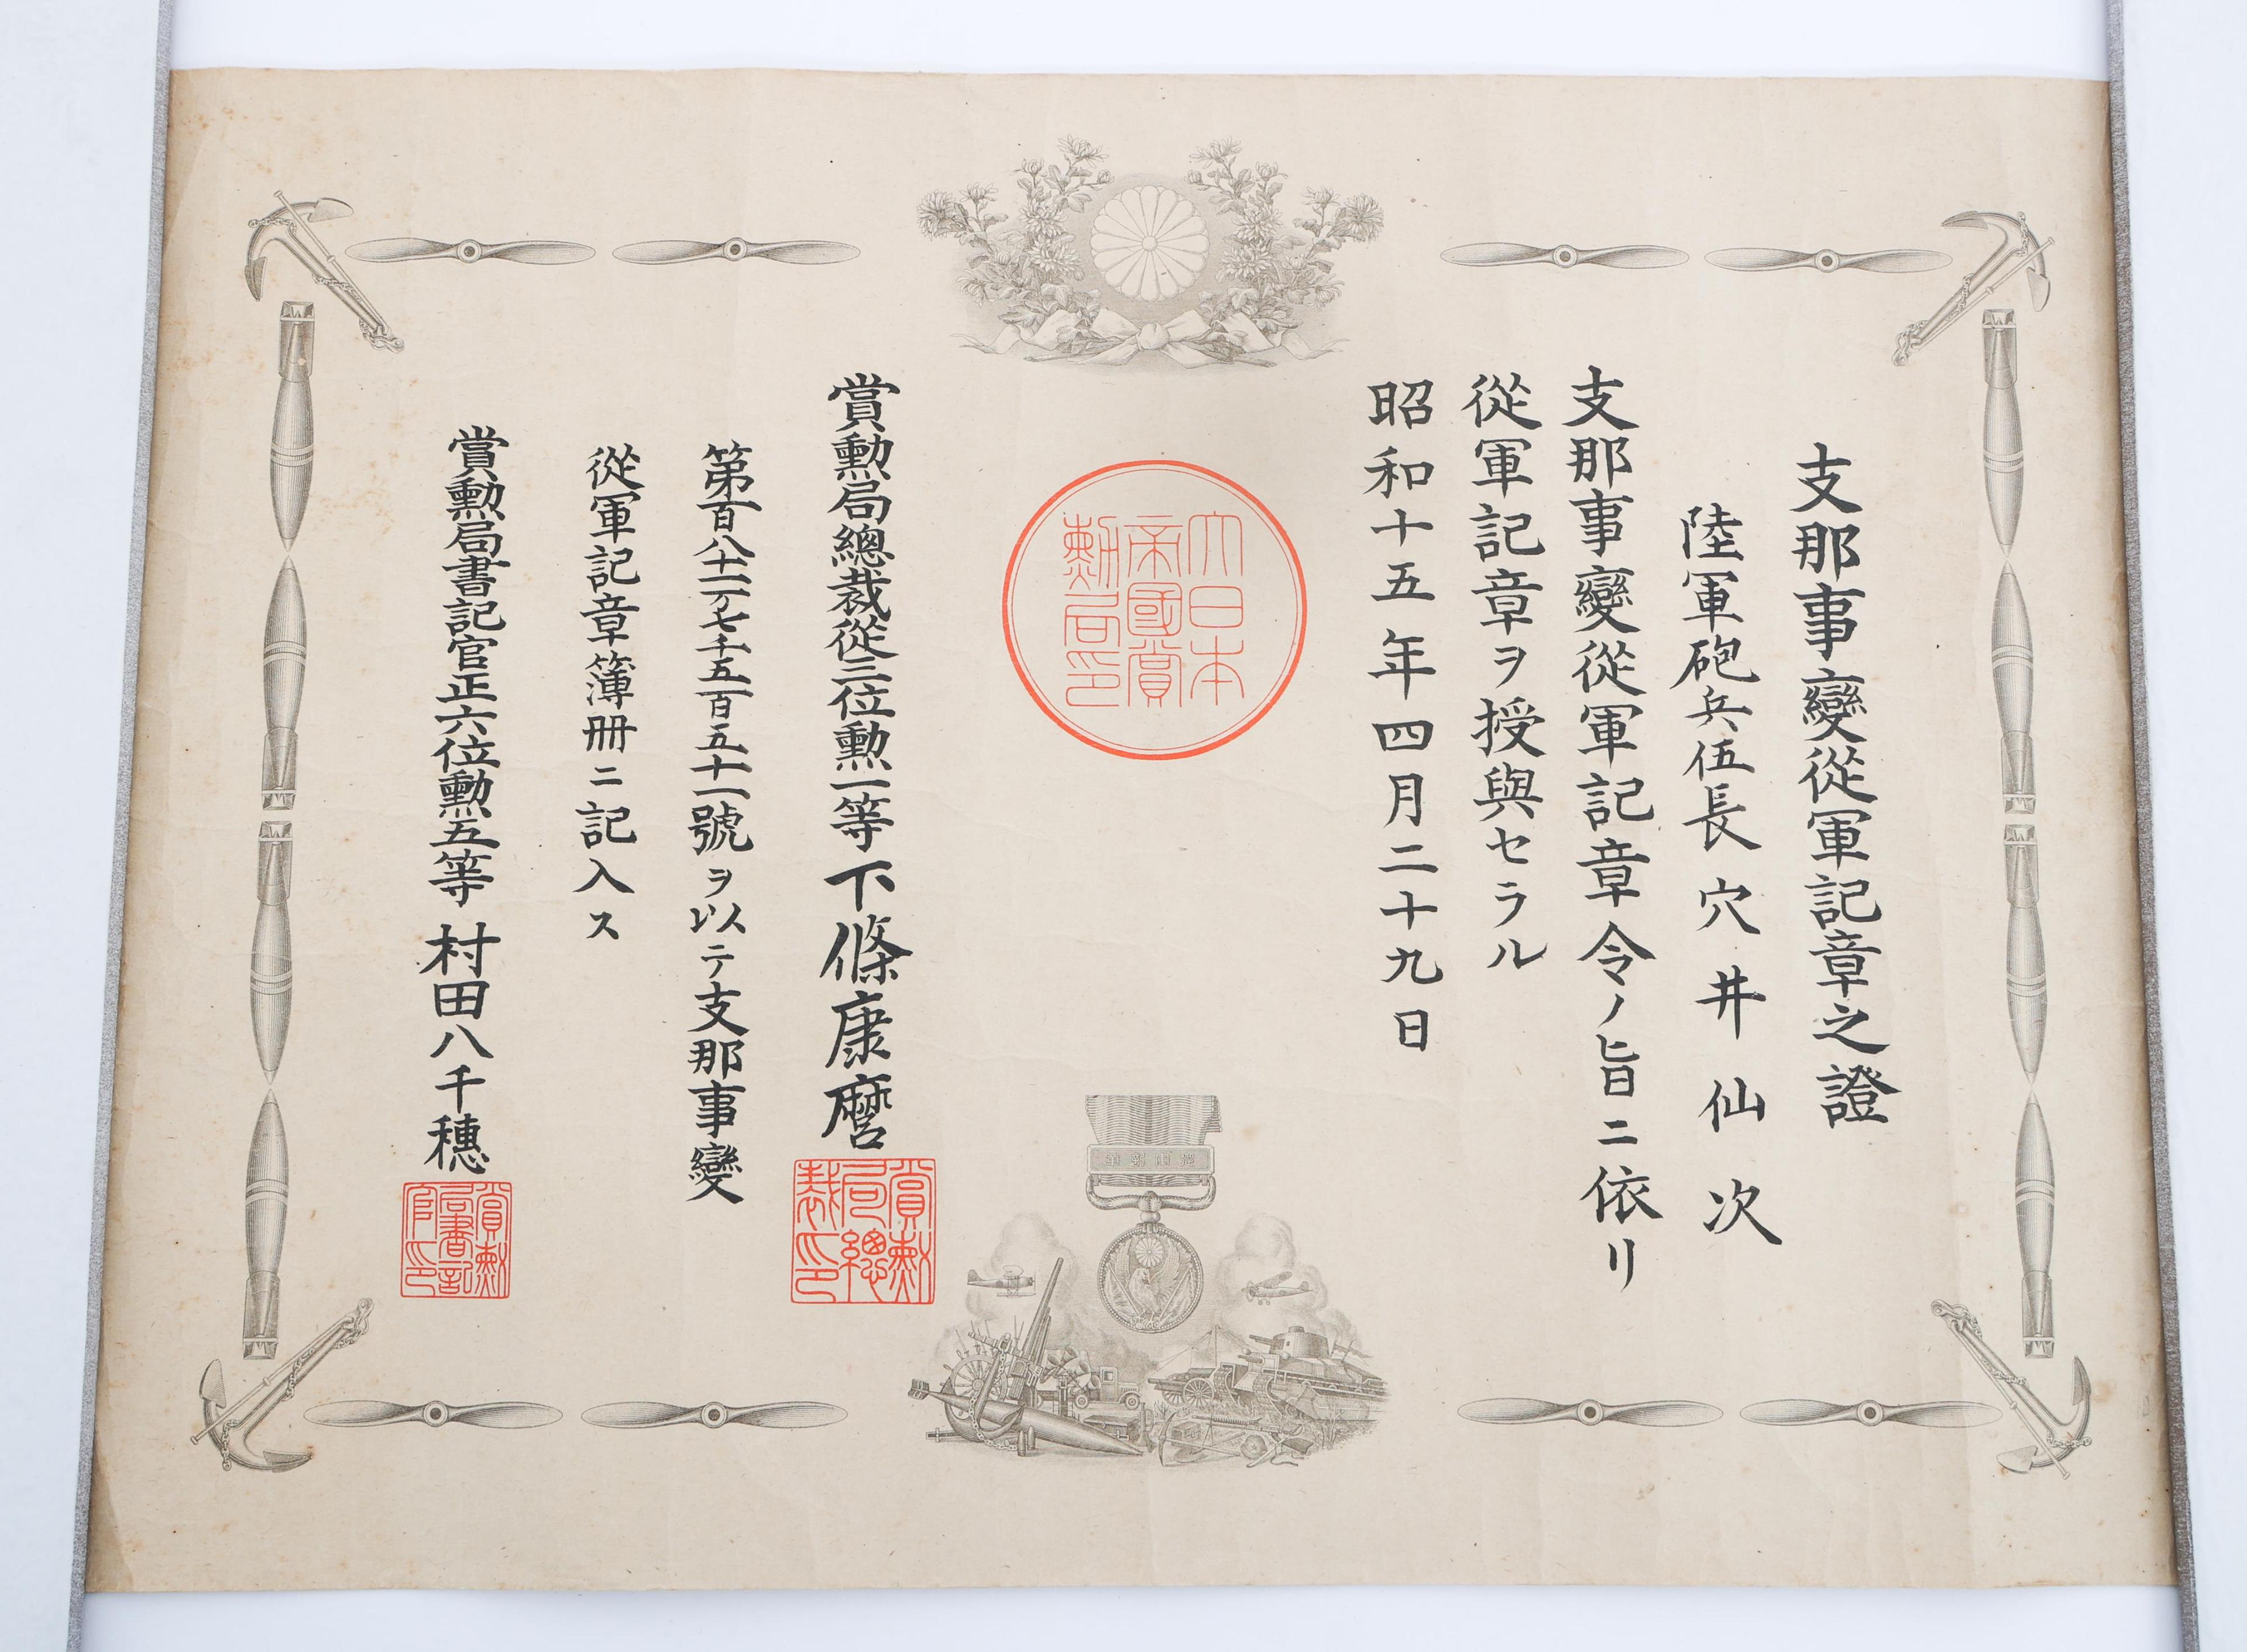 支那事變從軍記章之證
陸軍砲兵伍長穴井仙次
支那事變從軍記章令ノ旨ニ依リ
從軍記章ヲ授與セラル
昭和十五年四月二十九日
大日本
帝國賞
勲局印
從軍記章
賞勲局總裁從三位勲一等下條康麿
賞勲
局總
裁印
第百八十一万七千五百五十一號ヲ以テ支那事變
從軍記章簿冊ニ記入ス
賞勲局書記官正六位勲五等村田八千穗
賞勲
局書記
官印